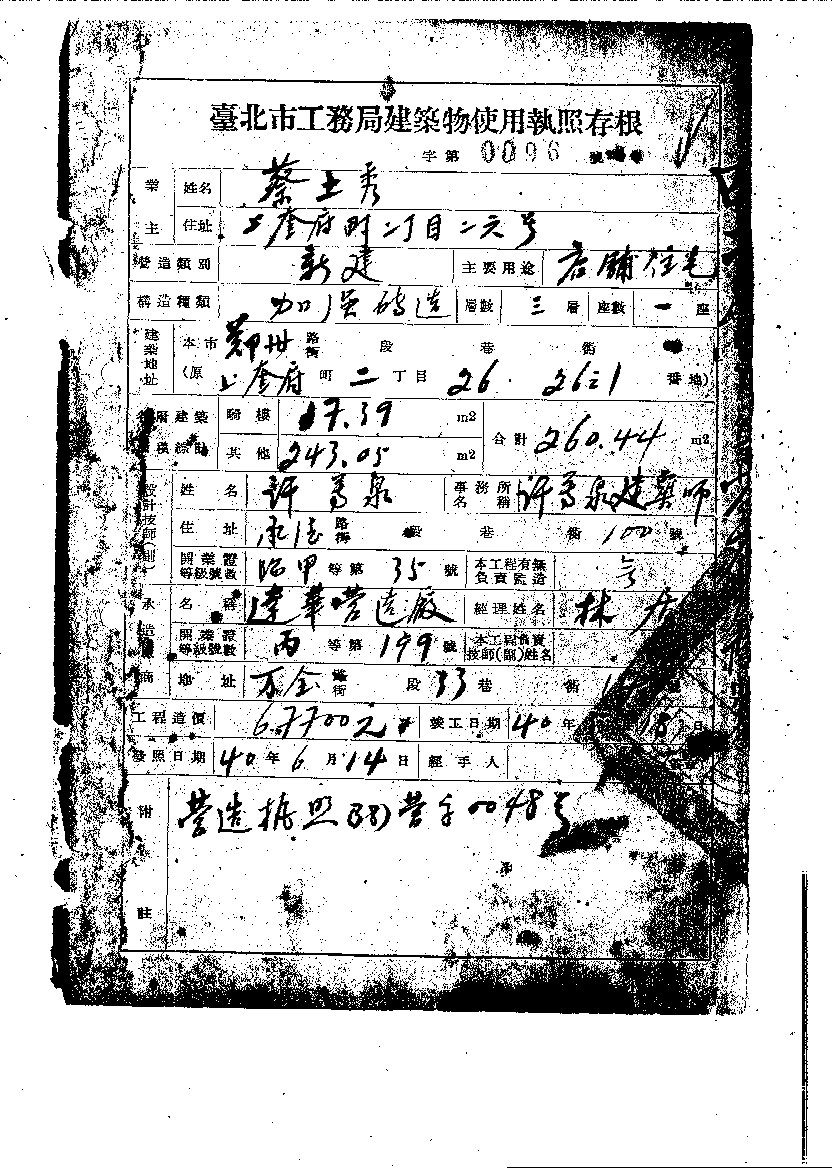 臺北市工務局建築物使用執照存根
字第 0096 號
業主 姓名 蔡土秀
住址 上奎府町二丁目二六号
營造類別 新建 主要用途 店鋪住宅
構造種類 加强磚造 層數 三 層 座數 一 座
建築地址 本市 鄭州 路街 段 巷 衖
(原 上奎府 町 二 丁目 26 26之1 番地)
層建築 騎樓 17.39 m2 合計 260.44 m2
其他 243.05 m2
設計技師(副) 姓名 許喬泉 事務所名稱 许喬泉建築師
住址 承德 路街 段 巷 衖 100 號
開業證等級號數 甲 等第 35 號 本工程有無負責監造
承造廠商 名稱 達華营造廠 經理姓名 林
開業證等級號數 丙 等第 199 號 本工程負責技師(副)姓名
地址 万全 路街 段 33 巷 衖 號
工程造價 67700元 竣工日期 40 年 18 日
發照日期 40 年 6 月 14 日 經手人
附註 营造执照(38)营字0048号